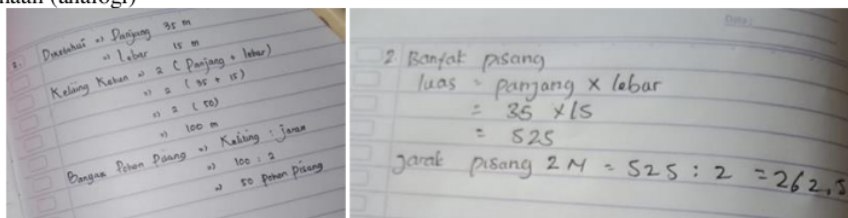 (analogi)
2. Diketahui => Panjang 35 m
=> Lebar 15 m
Keliling Kebun => 2 ( Panjang + lebar)
=> 2 ( 35 + 15)
=> 2 ( 50)
=> 100 m
Banyak Pohon Pisang => Keliling : jarak
=> 100 : 2
=> 50 pohon pisang
Date:
2 Banyak pisang
luas = panjang x lebar
= 35 x 15
= 525
jarak pisang 2 M = 525 : 2 = 262,5